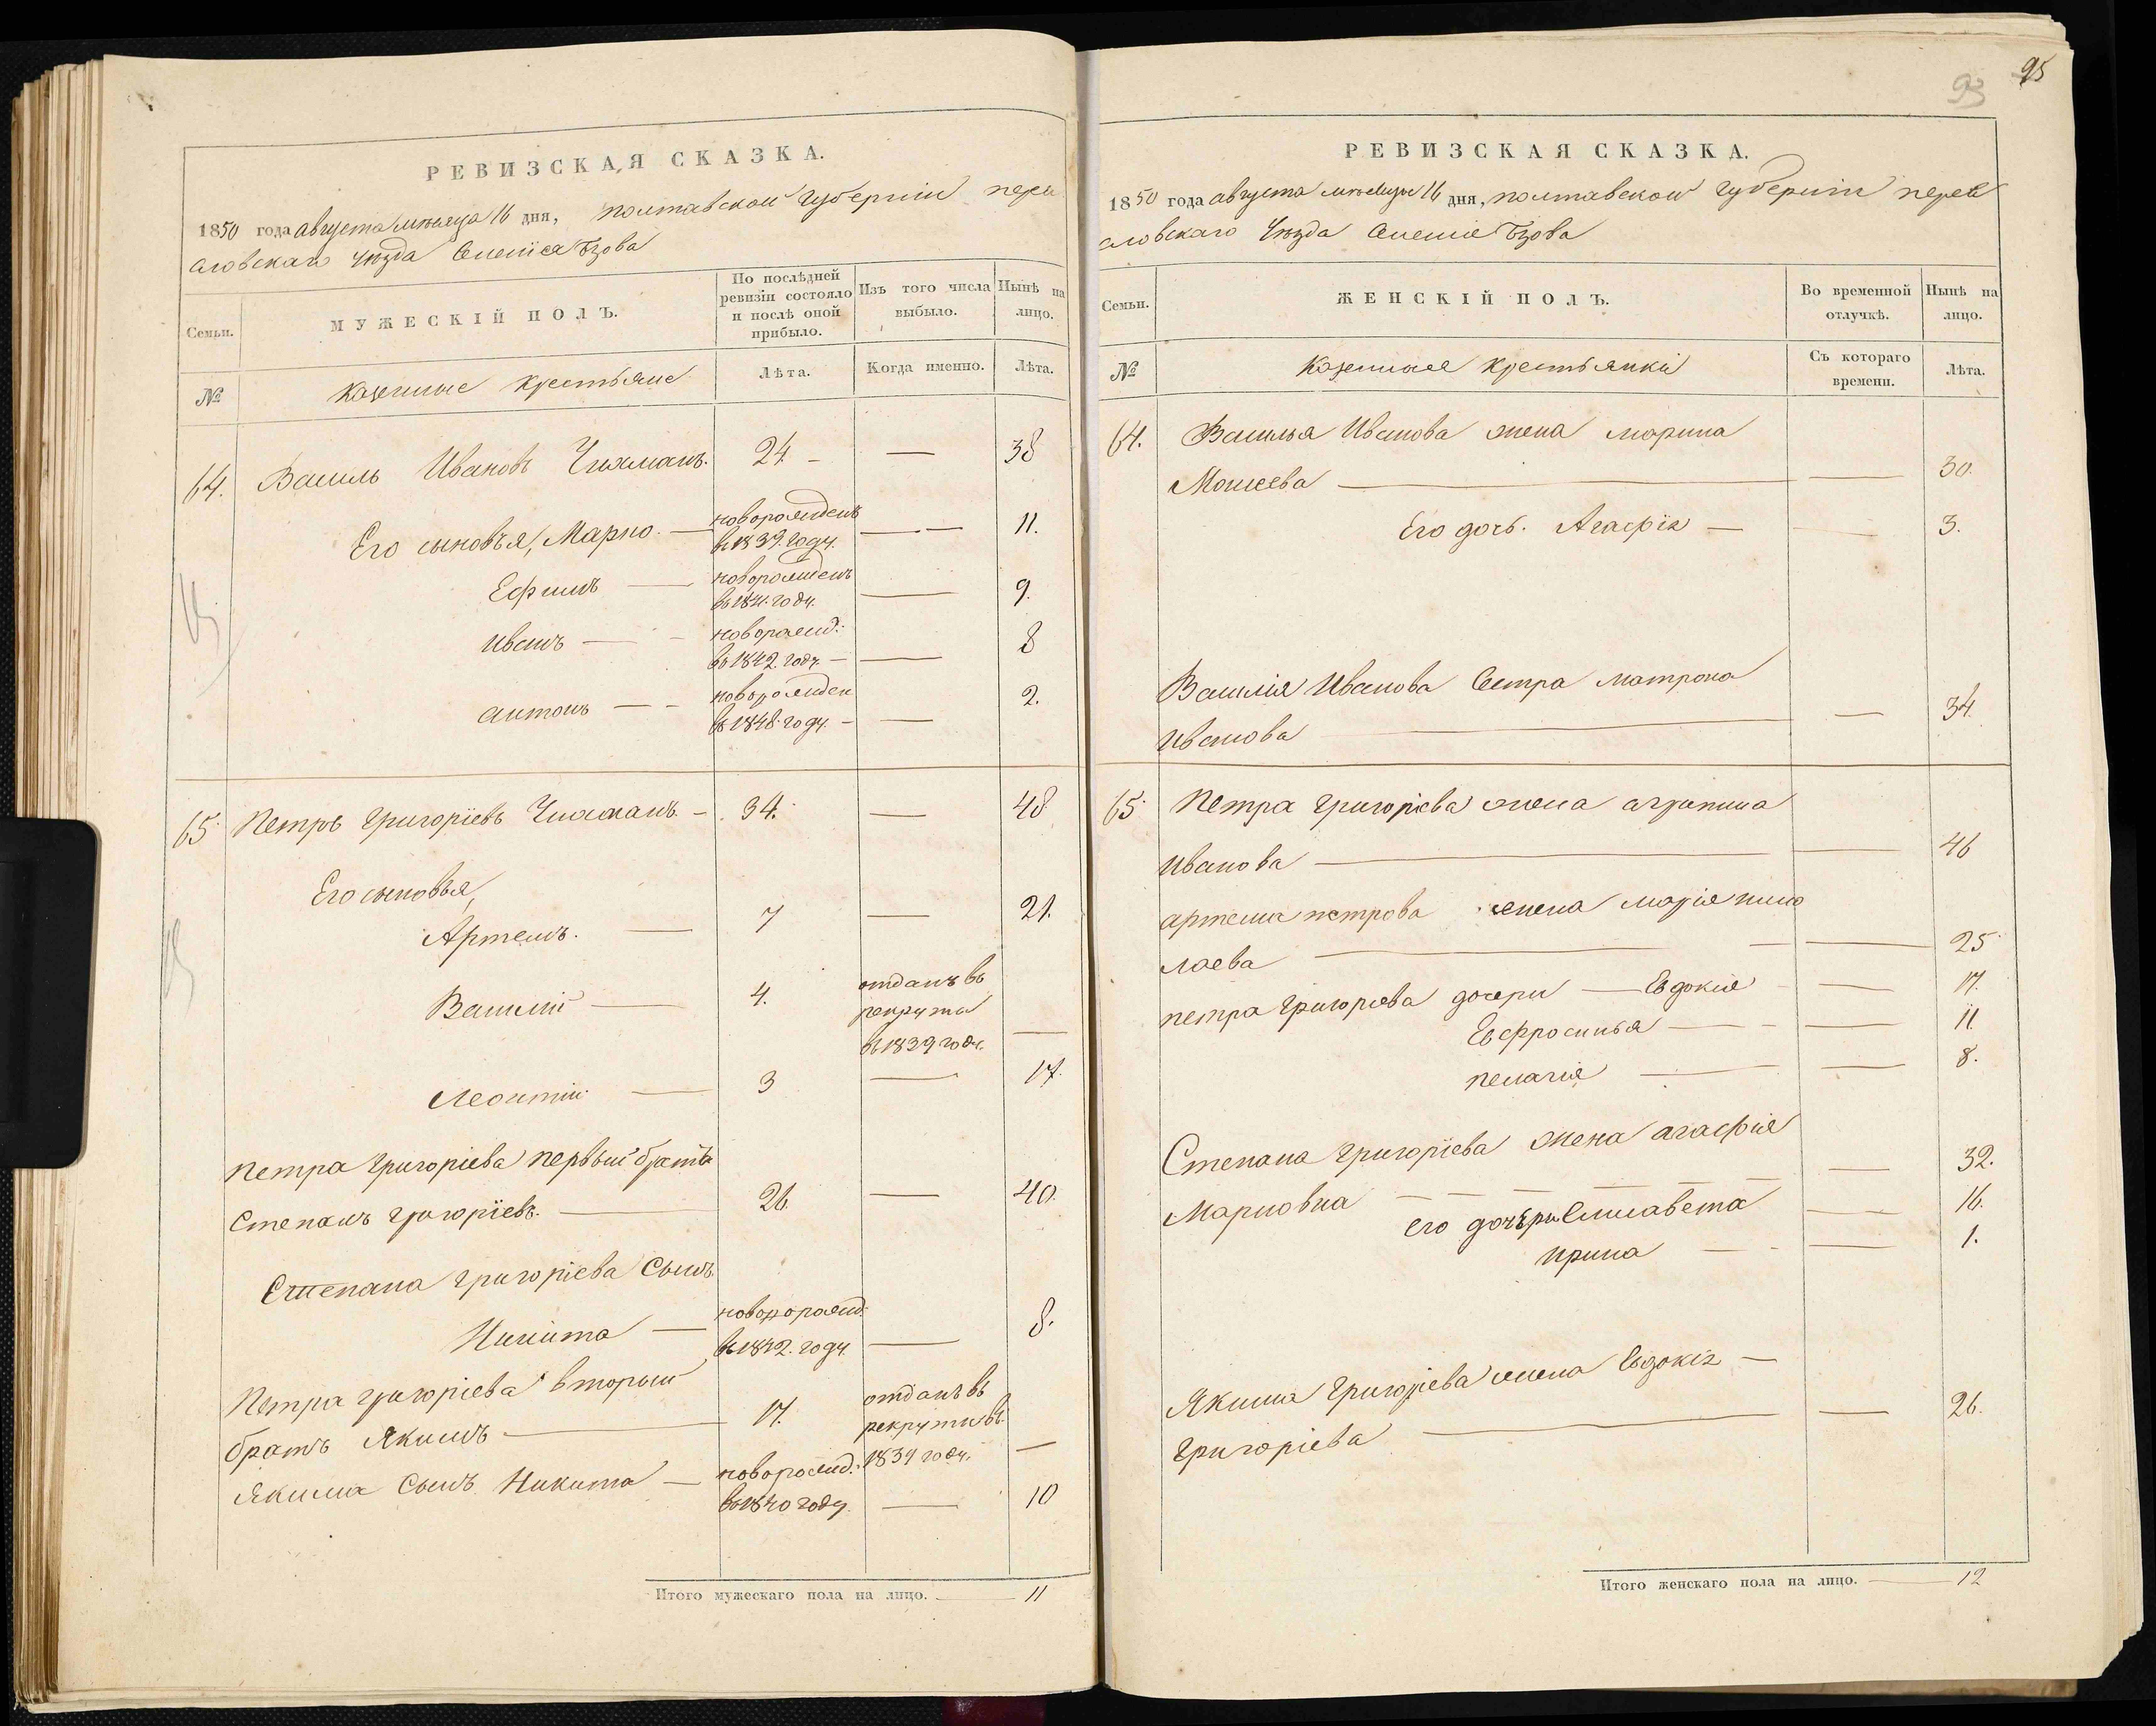 РЕВИЗСКАЯ СКАЗКА.
1850 года августа месяца 16 дня, полтавской губернии перея
словскаго уѣзда Селенiя Бзова
Семьи.
МУЖЕСКІЙ ПОЛЪ.
По послѣдней ревизіи состояло и послѣ оной прибыло.
Изъ того числа выбыло.
Нынѣ на лицо.
№
Казенные крестьяне
Лѣта.
Когда именно.
Лѣта.
64. Василь Ивановъ 24 — 38
Его сыновья, Марко — новорожденъ в 1839 году. — 11.
Ефимъ — новорожденъ въ 1841 году. — 9.
Иванъ — новорожд: въ 1842 году — 8
Антонъ — новорожден в 1848 году. — 2.
65 Петръ Григоріевъ — 34. — 48
Его сыновья,
Артемъ. — 7 — 21.
Василій — 4. отданъ въ
рекруты
въ 1839 году. —
Леонтій — 3 — 17.
Петра Григоріева первый братъ
Степанъ Григоріевъ. — 26. — 40.
Степана Григоріева Сынъ
Никита — новорожд: в 1842 году. — 8.
Петра Григоріева вторый
братъ Якимъ — 17. отданъ въ рекруты въ 1839 году. —
Якима Сынъ Никита — новорожд: въ 1840 году. — 10
Итого мужескаго пола на лицо. — 11
95
93
РЕВИЗСКАЯ СКАЗКА.
1850 года августа месяца 16 дня, полтавской губернии перея
словскаго уѣзда Селеніе Бзова
Семьи.
ЖЕНСКІЙ ПОЛЪ.
Во временной отлучкѣ.
Нынѣ на лицо.
№
Казенные крестьянки
Съ котораго времени.
Лѣта.
64. Василья Иванова жена Марина
Моисеева — — 30.
Его дочь. Агафія — — 3.
Василія Иванова Сестра Матрона
Иванова — 34.
65. Петра Григоріева жена агрипина
Иванова — — 46
Артема петрова жена Марія нико
лаева — — 25
петра Григорiева дочери — Евдокія — 17.
Евфросинья — — 11.
пелагія — — 8.
Степана Григоріева жена агафія
Марковна — 32.
его дочѣри Елисавета — 16.
Ирина — — 1.
Якима Григоріева жена Евдокія —
Григоріева — — 26.
Итого женскаго пола на лицо. — 12